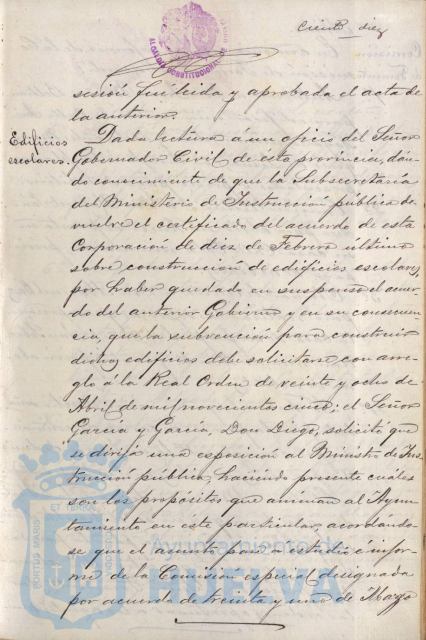 Ciento diez
ALCALDIA CONSTITUCIONAL DE
sesión fué leida y aprobada el acta de
la anterior.
Edificios
escolares.
Dada lectura á un oficio del Señor
Gobernador Civil de esta provincia, dán-
do conocimiento de que la Subsecretaría
del Ministerio de Instrucción pública de-
vuelve el certificado del acuerdo de esta
Corporación de diez de Febrero último
sobre construcción de edificios escolares,
por haber quedado en suspenso el acuer-
do del anterior Gobierno y en su consecuen-
cia, que la subvención para construir
dichos edificios debe solicitarse con arre-
glo á la Real Orden de veinte y ocho de
Abril de mil novecientos cinco; el Señor
García y García, Don Diego, solicitó que
se dirija una exposición al Ministro de Ins-
trucción pública, haciendo presente cuáles
son los propósitos que animan al Ayun-
tamiento en este particular, acordándo-
se que el asunto pase á estudio é infor-
me de la Comisión especial designada
por acuerdo de treinta y uno de Marzo
PORTUS MARIS ET TERRAE
Ayuntamiento de
HUELVA